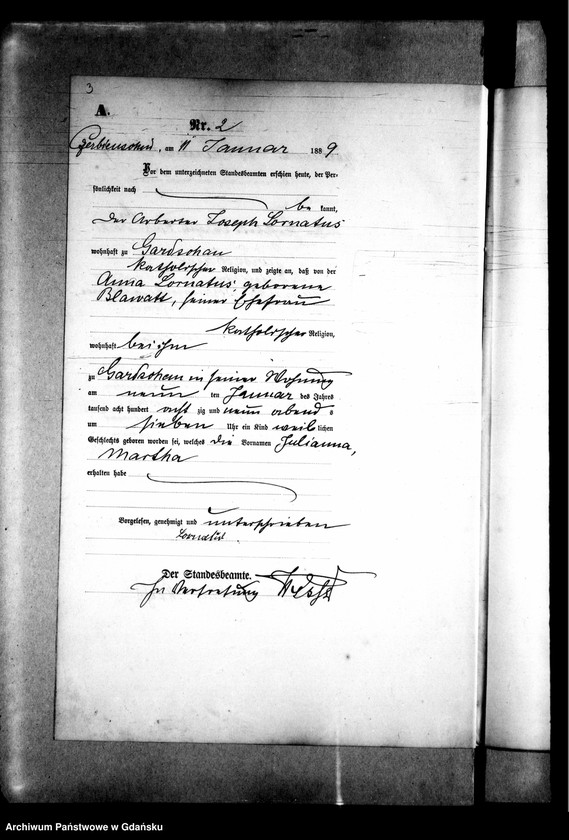 3
A.
Nr. 2
Czerbienschin, am 11 Januar 1889
Vor dem unterzeichneten Standesbeamten erschien heute, der Per-
sönlichkeit nach
be kannt,
der Arbeiter Joseph Lornatus
wohnhaft zu Gardschau
katholischer Religion, und zeigte an, daß von der
Anna Lornatus, geborene
Blawatt, seiner Ehefrau
katholischer Religion,
wohnhaft bei ihm
zu Gardschau in seiner Wohnung
am neun ten Januar des Jahres
tausend acht hundert acht zig und neun abend s
um sieben Uhr ein Kind weib lichen
Geschlechts geboren worden sei, welches die Vornamen Julianna,
Martha
erhalten habe
Vorgelesen, genehmigt und unterschrieben
Lornatus.
Der Standesbeamte.
In Vertretung
Archiwum Państwowe w Gdańsku